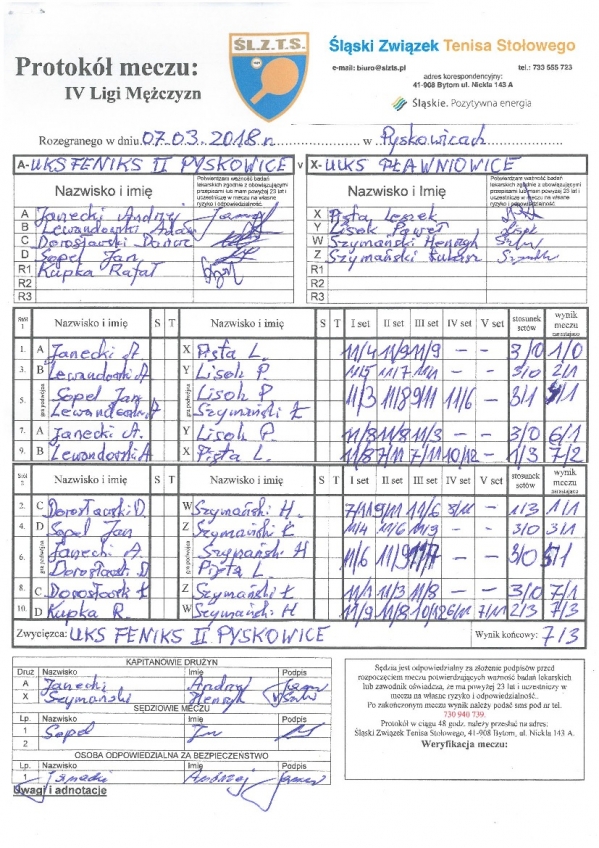 Protokół meczu:
IV Ligi Mężczyzn
ŚL.Z.T.S.
Śląski Związek Tenisa Stołowego
e-mail: biuro@slzts.pl tel.: 733 555 723
adres korespondencyjny:
41-908 Bytom ul. Nickla 143 A
Śląskie. Pozytywna energia
Rozegranego w dniu 07.03.2018 r. w Pyskowicach
A- UKS FENIKS II PYSKOWICE v X- UUKS PŁAWNIOWICE
Nazwisko i imię Potwierdzam ważność badań lekarskich zgodnie z obowiązującymi przepisami lub mam powyżej 23 lat i uczestniczę w meczu na własne ryzyko i odpowiedzialność.
Nazwisko i imię Potwierdzam ważność badań lekarskich zgodnie z obowiązującymi przepisami lub mam powyżej 23 lat i uczestniczę w meczu na własne ryzyko i odpowiedzialność.
A Janecki Andrzej X Pista Leszek
B Lewandowski Adam Y Lisok Paweł
C Dorosławski W Szymański Henryk
D Sopel Jan Z Szymański Łukasz
R1 Kupka Rafał R1
R2 R2
R3 R3
Stół 1 Nazwisko i imię S T Nazwisko i imię S T I set II set III set IV set V set stosunek setów wynik meczu narastająco
1. A Janecki A. X Pista L. 11/4 11/9 11/9 - - 3/0 1/0
3. B Lewandowski A Y Lisok P. 11/5 11/7 11/1 - - 3/0 2/1
5. gra podwójna Sopel Jan Lisok P. 11/3 11/8 9/11 11/6 - 3/1 /1
Lewandowski A Szymański Ł
7. A Janecki A. Y Lisok P. 11/8 11/8 11/3 - - 3/0 6/1
9. B Lewandowski A X Pista L. 11/8 7/11 7/11 10/12 - 1/3 7/2
Stół 2 Nazwisko i imię S T Nazwisko i imię S T I set II set III set IV set V set stosunek setów wynik meczu narastająco
2. C Dorosławski D. W Szymański H. 7/11 9/11 11/6 - 1/3 1/1
4. D Sopel Jan Z Szymański Ł. 11/4 11/6 11/9 - - 3/0 3/1
6. gra podwójna Janecki A. Szymański H 11/6 11/9 - - 3/0 5/1
Pista L.
8. C Z Szymański Ł 11/1 11/3 11/8 - - 3/0 7/1
10. D Kupka R. W Szymański H 11/9 11/8 10/12 6/11 7/11 2/3 7/3
Zwycięzca: UKS FENIKS II PYSKOWICE Wynik końcowy: 7/3
KAPITANOWIE DRUŻYN
Druż Nazwisko Imię Podpis
A Janecki Andrzej
X Szymański Henryk
SĘDZIOWIE MECZU
Lp. Nazwisko Imię Podpis
1 Sopel
2
OSOBA ODPOWIEDZIALNA ZA BEZPIECZEŃSTWO
Lp. Nazwisko Imię Podpis
1 Janecki Andrzej
Uwagi i adnotacje
Sędzia jest odpowiedzialny za złożenie podpisów przed
rozpoczęciem meczu potwierdzających ważność badań lekarskich
lub zawodnik oświadcza, że ma powyżej 23 lat i uczestniczy w
meczu na własne ryzyko i odpowiedzialność.
Po zakończonym meczu wynik należy podać sms pod nr tel.
730 940 739.
Protokół w ciągu 48 godz. należy przesłać na adres:
Śląski Związek Tenisa Stołowego, 41-908 Bytom, ul. Nickla 143 A.
Weryfikacja meczu: